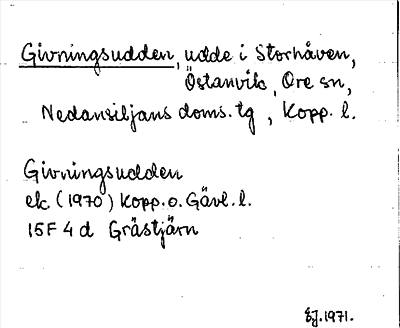 Givningsudden, udde i Storhåven,
Östanvik, Ore sn,
Nedansiljans doms. tg, Kopp. l.
Givningsudden
ek (1970) Kopp. o. Gävl. l.
15F 4d Gråstjärn
EJ. 1971.